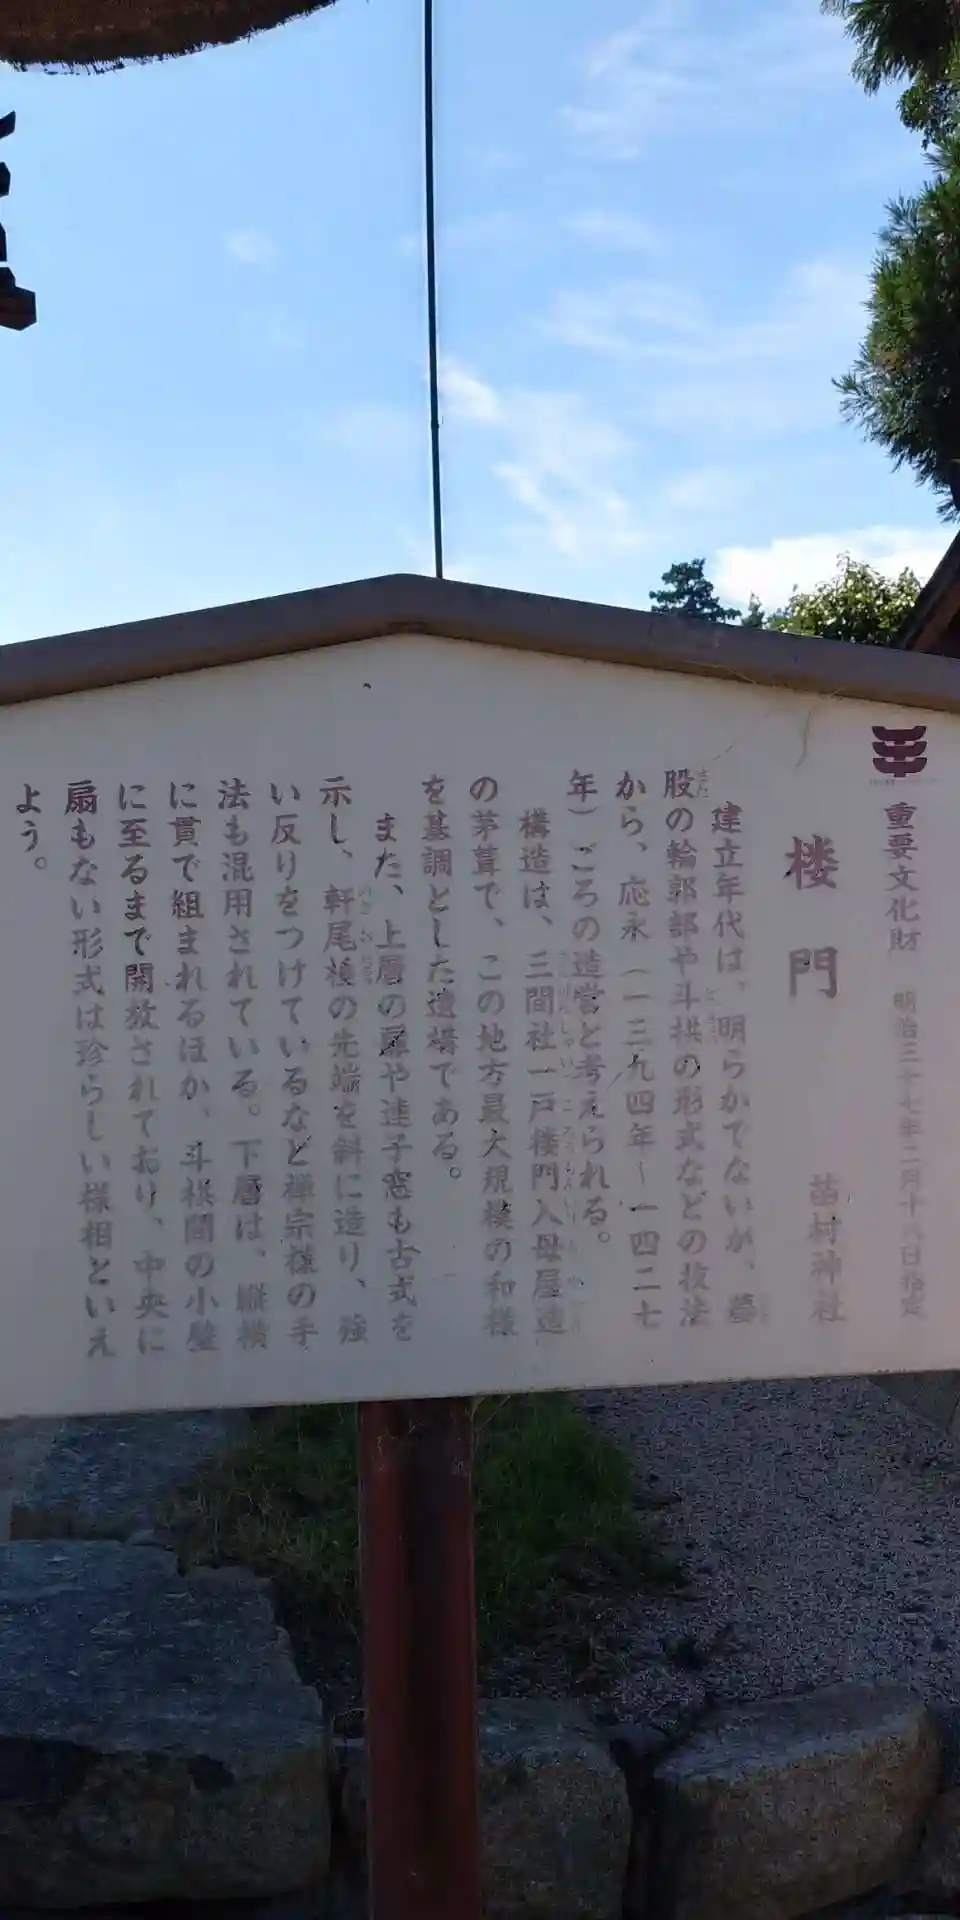 重要文化財 明治三十七年二月十八日指定
楼門 苗村神社
建立年代は、明らかでないが、蟇
股の輪郭部や斗栱の形式などの技法
から、応永（一三九四年～一四二七
年）ごろの造営と考えられる。
構造は、三間社一戸楼門入母屋造
の茅葺で、この地方最大規模の和様
を基調とした遺構である。
また、上層の扉や連子窓も古式を
示し、軒尾垂の先端を斜に造り、強
い反りをつけているなど禅宗様の手
法も混用されている。下層は、縦横
に貫で組まれるほか、斗栱間の小壁
に至るまで開放されており、中央に
扇もない形式は珍らしい様相といえ
よう。